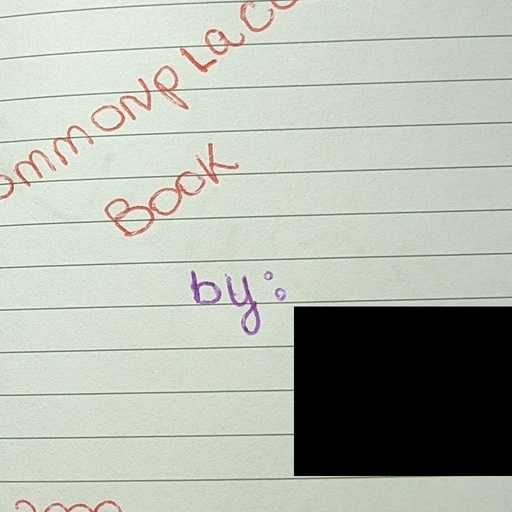 ommonplac
Book
by: